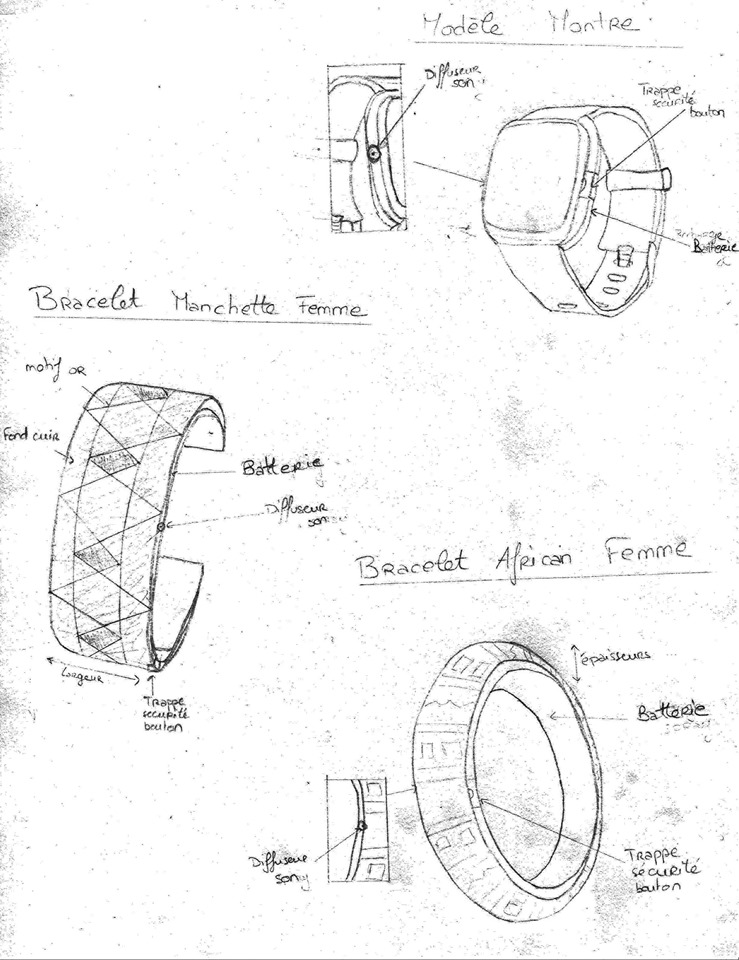 Modèle Montre
Diffuseur
son
Trappe
sécurité
bouton
Batterie
Bracelet Manchette Femme
motif OR
Fond cuir
Batterie
Diffuseur
son
Largeur
Trappe
sécurité
bouton
Bracelet African Femme
épaisseurs
Batterie
Diffuseur
son
Trappe
sécurité
bouton